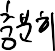 충분히